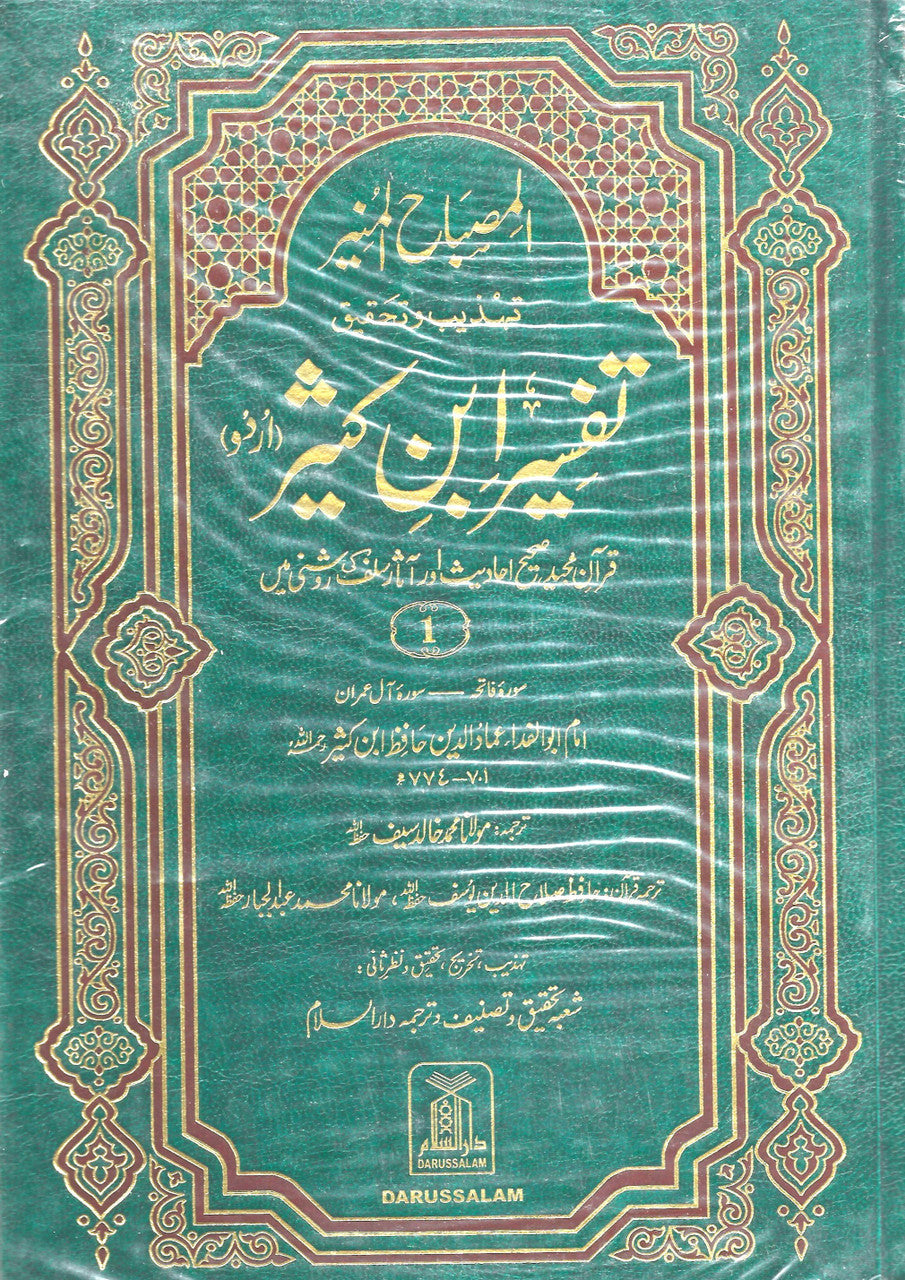 المِصباح المُنیر
تہذیب و تحقیق
تفسیر ابنِ کثیر (اُردُو)
قرآن مجید، صحیح احادیث اور آثارِ سلف کی روشنی میں
1
سورۂ فاتحہ — سورۂ آل عمران
امام ابوالفداء عماد الدین حافظ ابن کثیر رحمہ اللہ
٧٠١-٧٧٤ھ
ترجمہ: مولانا محمد خالد سیف حفظہ اللہ
ترجمہ قرآن: حافظ صلاح الدین یوسف حفظہ اللہ، مولانا محمد عبدالجبار حفظہ اللہ
تہذیب، تخریج، تحقیق و نظر ثانی:
شعبہ تحقیق و تصنیف و ترجمہ دارالسلام
دارالسلام
DARUSSALAM
DARUSSALAM